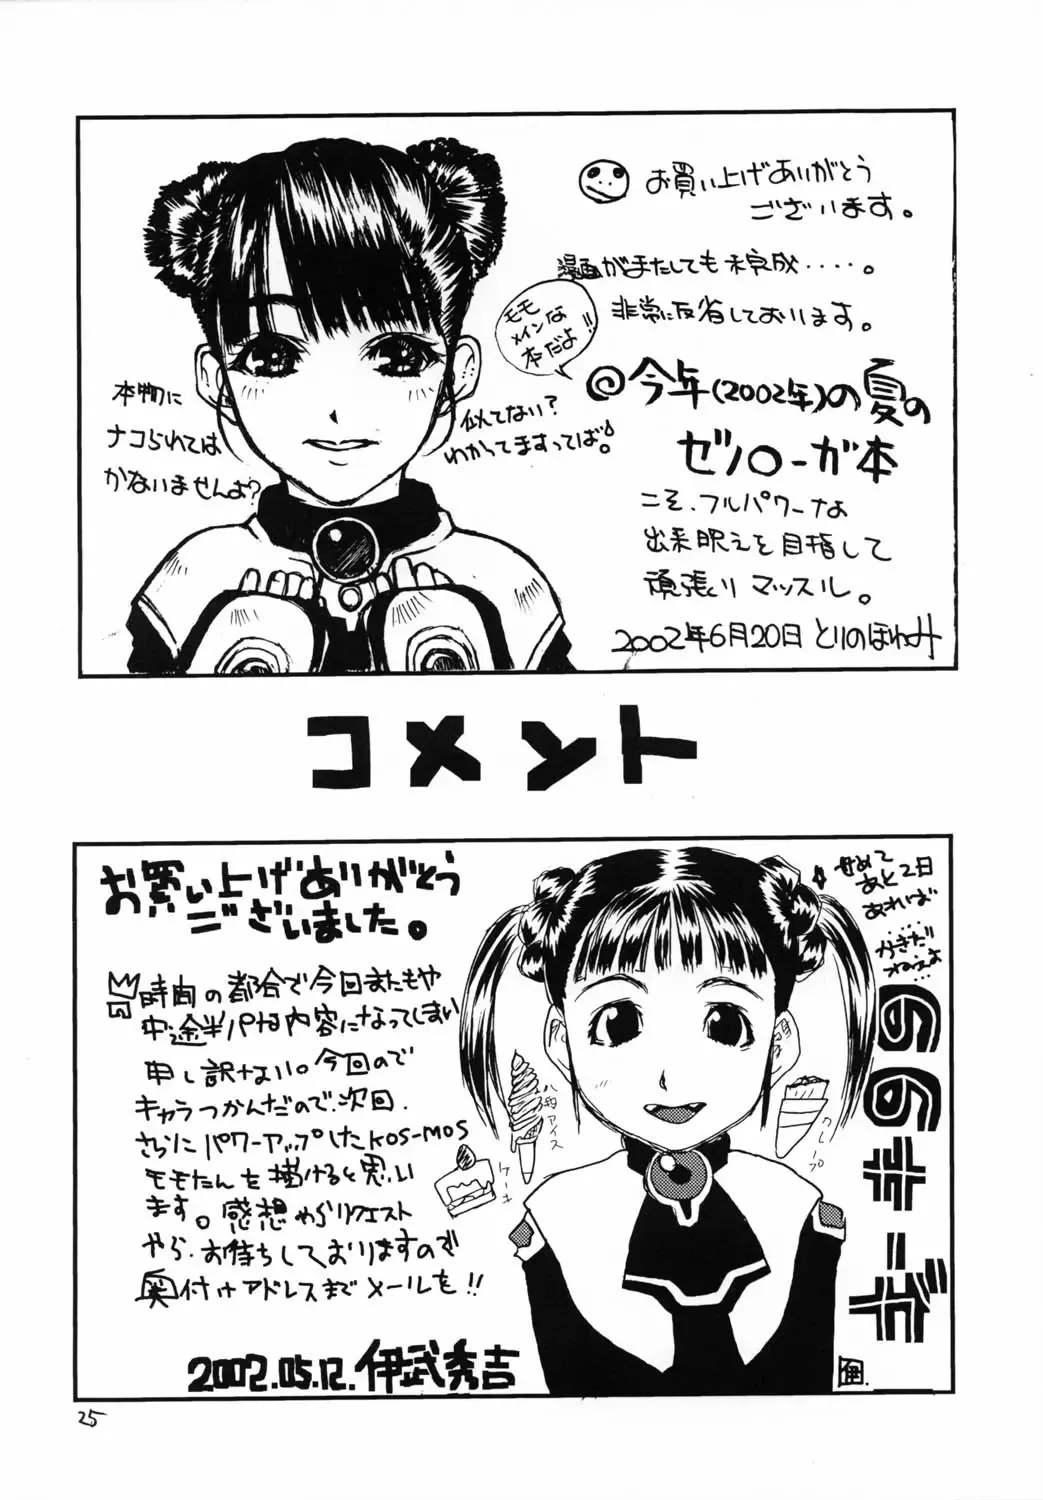 お買い上げありがとう
ございます。
漫画がまたしても未完成・・・・。
非常に反省しております。
モモ
メインな
本だよ!!
◎今年(2002年)の夏の
ゼノ○ーガ本
こそ、フルパワーな
出来映えを目指して
頑張りマッスル。
2002年6月20日 とりのほねみ
本物に
ナコられては
かないませんよ?
似てない?
わかってますってば!
コメント
お買い上げありがとう
ございました。
時間の都合で今回またもや
中途半パな内容になってしまい
申し訳ない。今回ので
キャラつかんだので、次回、
さらにパワーアップしたKOS-MOS
モモたんを描けると思い
ます。感想やらリクエスト
やら、お待ちしておりますので
奥付けアドレスまでメールを!!
2002.05.12. 伊武秀吉
せめて
あと2日
あれば
・・・・・
かきだ
ねえよ
・・・
八段アイス
ケーキ
クレープ
伊.
25